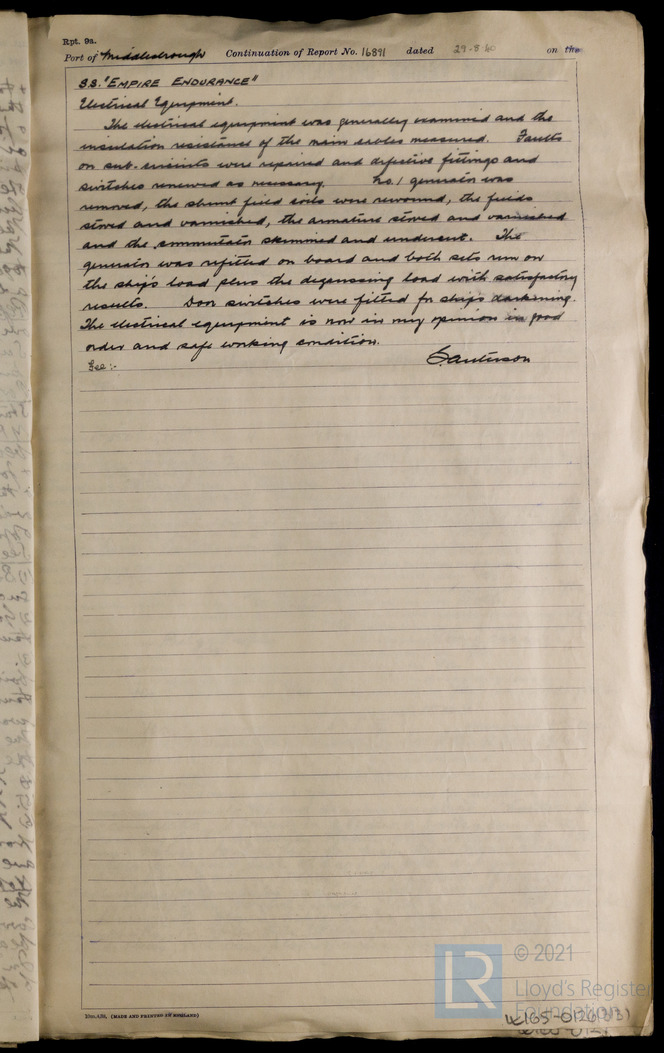 Rpt. 9a.
Port of Middlesbrough Continuation of Report No. 16891 dated 29-8-40 on the
S.S. "EMPIRE ENDURANCE"
Electrical Equipment.
The electrical equipment was generally examined and the
insulation resistance of the main cables measured. Faults
on sub-circuits were repaired and defective fittings and
switches renewed as necessary. No. 1 generator was
removed, the shunt field coils were rewound, the fields
stoved and varnished, the armature stoved and varnished
and the commutator skimmed and undercut. The
generator was refitted on board and both sets run on
the ship's load plus the degaussing load with satisfactory
results. Door switches were fitted for ship's darkening.
The electrical equipment is now in my opinion in good
order and safe working condition.
Fee:-
(MADE AND PRINTED IN ENGLAND)
© 2021
LR
Lloyd's Register
Foundation